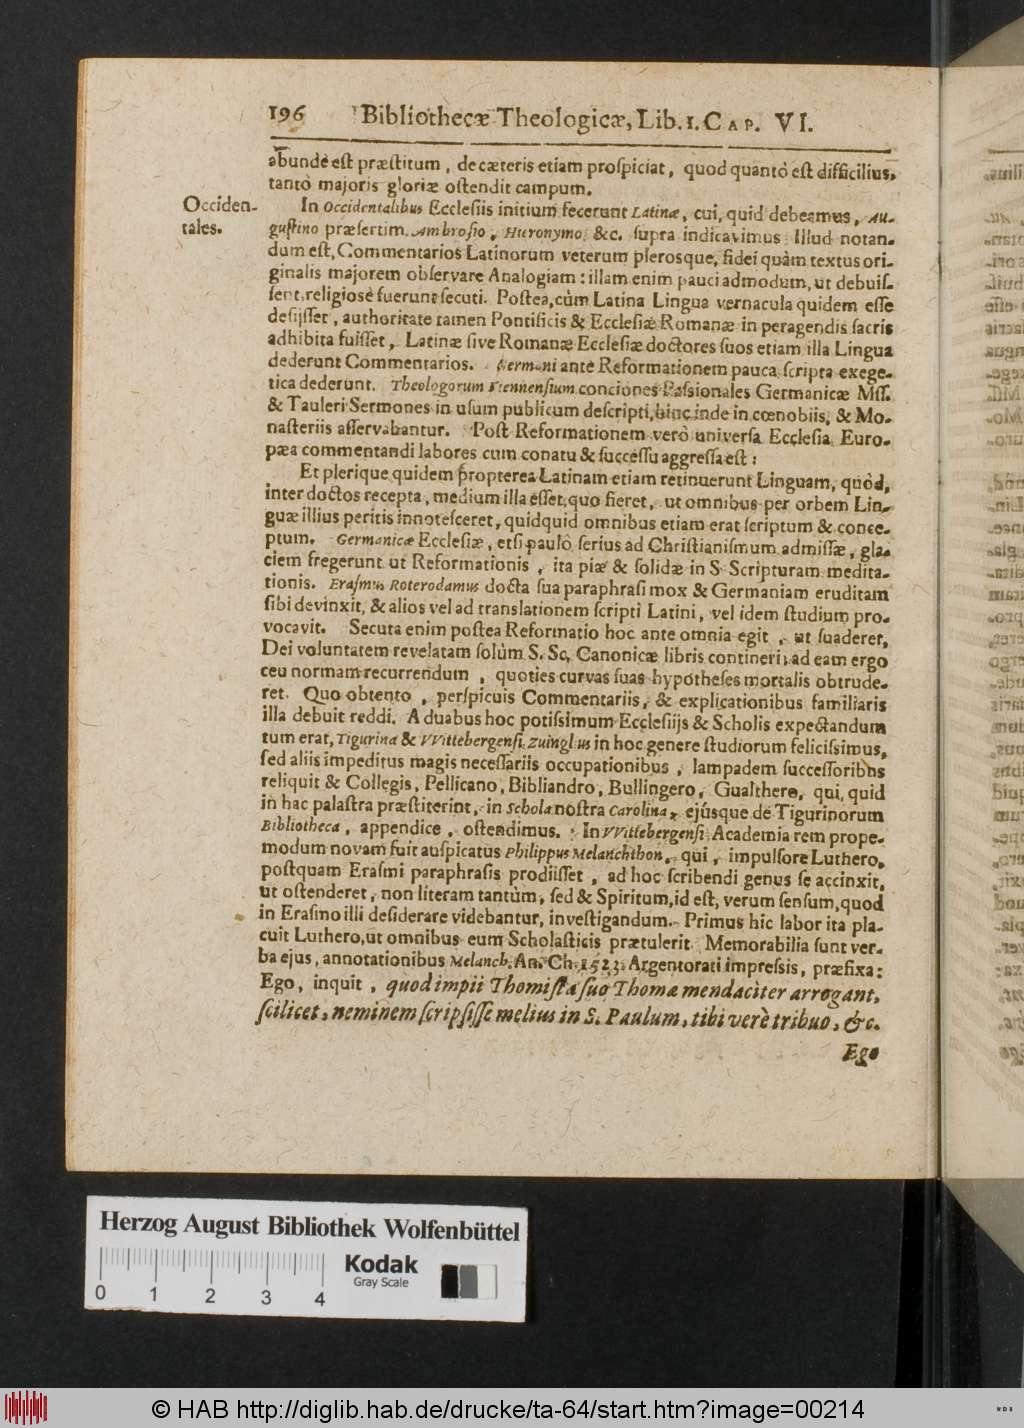 196 Bibliothecæ Theologicæ, Lib. 1. CAP. VI.
abundè eſt præſtitum, de cæteris etiam proſpiciat, quod quantò eſt difficilius,
tantò majoris gloriæ oſtendit campum.
Occiden-
tales.
In Occidentalibus Eccleſiis initium fecerunt Latinæ, cui, quid debeamus, Au-
guſtino præſertim, Ambroſio, Hieronymo, &c. ſupra indicavimus. Illud notan-
dum eſt, Commentarios Latinorum veterum plerosque, fidei quàm textus ori-
ginalis majorem obſervare Analogiam: illam enim pauci admodum, ut debuiſ-
ſent, religiosè fuerunt ſecuti. Poſtea, cùm Latina Lingua vernacula quidem eſſe
deſijſſet, authoritate tamen Pontificis & Eccleſiæ Romanæ in peragendis ſacris
adhibita fuiſſet, Latinæ ſive Romanæ Eccleſiæ doctores ſuos etiam illa Lingua
dederunt Commentarios. Germani ante Reformationem pauca ſcripta exege-
tica dederunt. Theologorum Viennenſium conciones Paſsionales Germanicæ Mſſ.
& Tauleri Sermones in uſum publicum deſcripti, hinc inde in cœnobiis, & Mo-
naſteriis aſſervabantur. Poſt Reformationem verò univerſa Eccleſia Euro-
pæa commentandi labores cum conatu & ſucceſſu aggreſſa eſt:
Et plerique quidem propterea Latinam etiam retinuerunt Linguam, quòd,
inter doctos recepta, medium illa eſſet, quo fieret, ut omnibus per orbem Lin-
guæ illius peritis innoteſceret, quidquid omnibus etiam erat ſcriptum & conce-
ptum. Germanicæ Eccleſiæ, etſi paulò ſerius ad Chriſtianiſmum admiſſæ, gla-
ciem fregerunt ut Reformationis, ita piæ & ſolidæ in S. Scripturam medita-
tionis. Eraſmus Roterodamus docta ſua paraphraſi mox & Germaniam eruditam
ſibi devinxit, & alios vel ad translationem ſcripti Latini, vel idem ſtudium pro-
vocavit. Secuta enim poſtea Reformatio hoc ante omnia egit, ut ſuaderet,
Dei voluntatem revelatam ſolùm S. Sc. Canonicæ libris contineri; ad eam ergo
ceu normam recurrendum, quoties curvas ſuas hypotheſes mortalis obtrude-
ret. Quo obtento, perſpicuis Commentariis, & explicationibus familiaris
illa debuit reddi. A duabus hoc potiſsimum Eccleſiijs & Scholis expectandum
tum erat, Tigurina & VVittebergenſi. Zuinglius in hoc genere ſtudiorum feliciſsimus,
ſed aliis impeditus magis neceſſariis occupationibus, lampadem ſucceſſoribus
reliquit & Collegis, Pellicano, Bibliandro, Bullingero, Gualthero, qui, quid
in hac palæſtra præſtiterint, in Schola noſtra Carolina, ejúsque de Tigurinorum
Bibliotheca, appendice, oſtendimus. In VVittebergenſi Academia rem prope-
modum novam fuit auſpicatus Philippus Melanchthon, qui, impulſore Luthero,
poſtquam Eraſmi paraphraſis prodiiſſet, ad hoc ſcribendi genus ſe accinxit,
ut oſtenderet, non literam tantùm, ſed & Spiritum, id eſt, verum ſenſum, quod
in Eraſmo illi deſiderare videbantur, inveſtigandum. Primus hic labor ita pla-
cuit Luthero, ut omnibus eum Scholaſticis prætulerit. Memorabilia ſunt ver-
ba ejus, annotationibus Melanch. An. Ch. 1523. Argentorati impreſsis, præfixa:
Ego, inquit, quod impii Thomiſtæ ſuo Thomæ mendaciter arrogant,
ſcilicet, neminem ſcripſiſſe melius in S. Paulum, tibi verè tribuo, &c.
Ego
Herzog August Bibliothek Wolfenbüttel
Kodak
Gray Scale
0 1 2 3 4
© HAB http://diglib.hab.de/drucke/ta-64/start.htm?image=00214